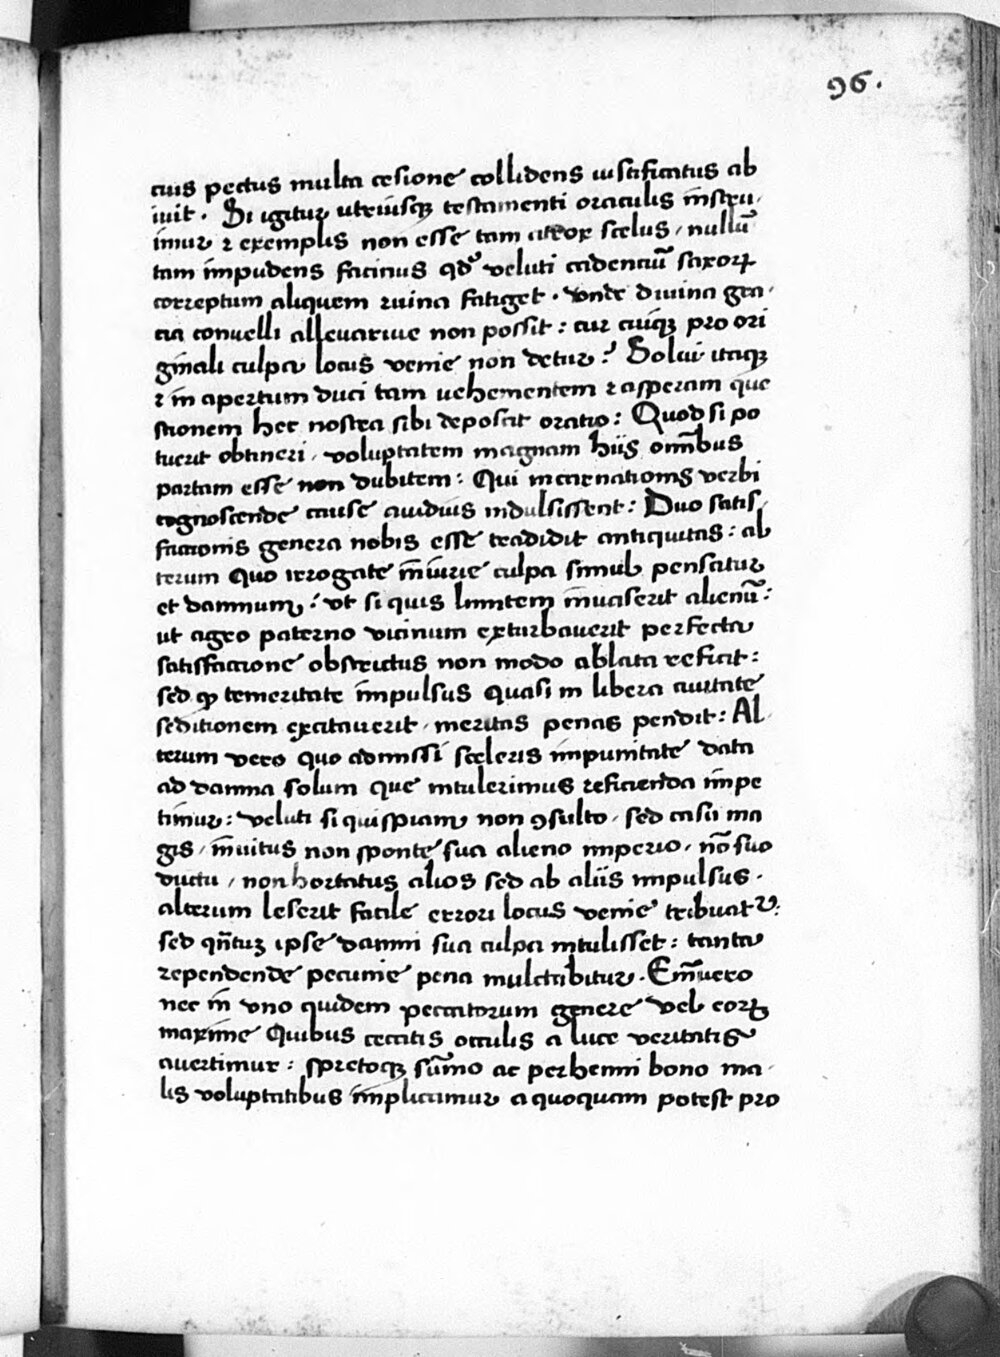 96.
cuis pectus multa cesione collidens iustificatus ab
iuit. Si igitur utriusqꝫ testamenti oraculis instru,
imur ꝛ exemplis non esse tam atrox scelus, nullũ
tam impudens facinus qđ veluti cadenciũ saxoꝝ
correptum aliquem ruina fatiget. Vnde diuina gra,
cia conuelli alleuariue non possit: cur cuiqꝫ pro ori
ginali culpa locus venie non detur? Solui itaqꝫ
ꝛ in apertum duci tam uehementem ꝛ asperam que
stionem hec nostra sibi deposcit oratio: Quod si po
tuerit obtineri, voluptatem magnam hiis om̃ibus
partam esse non dubitem: Qui incarnationis verbi
cognoscende cause auidius indulsissent: Duo satis,
factionis genera nobis esse tradidit antiquitas: al
terum quo irrogate iniurie culpa simul pensatur
et damnum: Vt si quis limitem inuaserit alienũ:
ut agro paterno vicinum exturbauerit perfecta
satisfactione obstrictus non modo ablata reficit:
sed ꝙ temeritate impulsus quasi in libera ciuitate
seditionem excitauerit, meritas penas pendit: Al,
terum vero quo admissi sceleris impunitate data
ad damna solum que intulerimus reficienda impe
timur: veluti si quispiam non ꝯsulto, sed casu ma
gis, inuitus non sponte sua alieno imperio, nõ suo
ductu, non hortatus alios sed ab aliis impulsus.
alterum leserit facile errori locus venie tribuatur:
sed qñtuꝫ ipse damni sua culpa intulisset: tanta
rependende pecunie pena mulctabitur. Em̃uero
nec in vno quidem peccatorum genere vel eoꝝ
maxime Quibus cecatis occulis a luce veritatis
auertimur: spretoqꝫ sũmo ac perhenni bono ma,
lis voluptatibus implicamur a quoquam potest pro